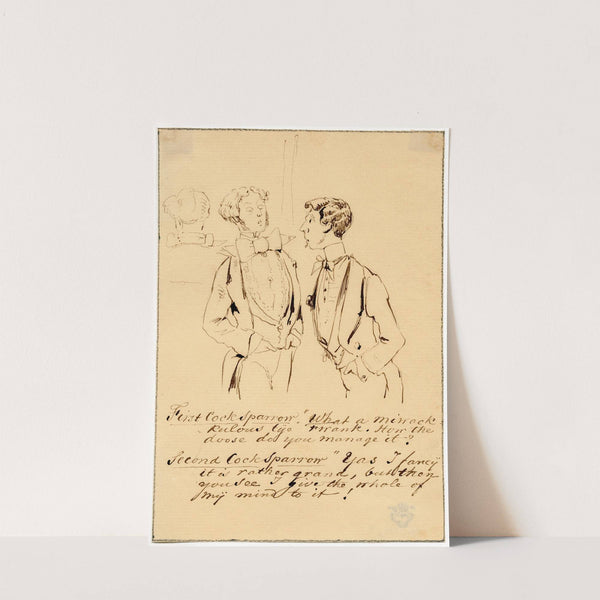 First Cock Sparrow. "What a mirrack=
kulous tye Frank. How the
doose do you manage it?
Second Cock Sparrow "Yas I fancy
it a rather grand, but then
you see I give the whole of
my mind to it!